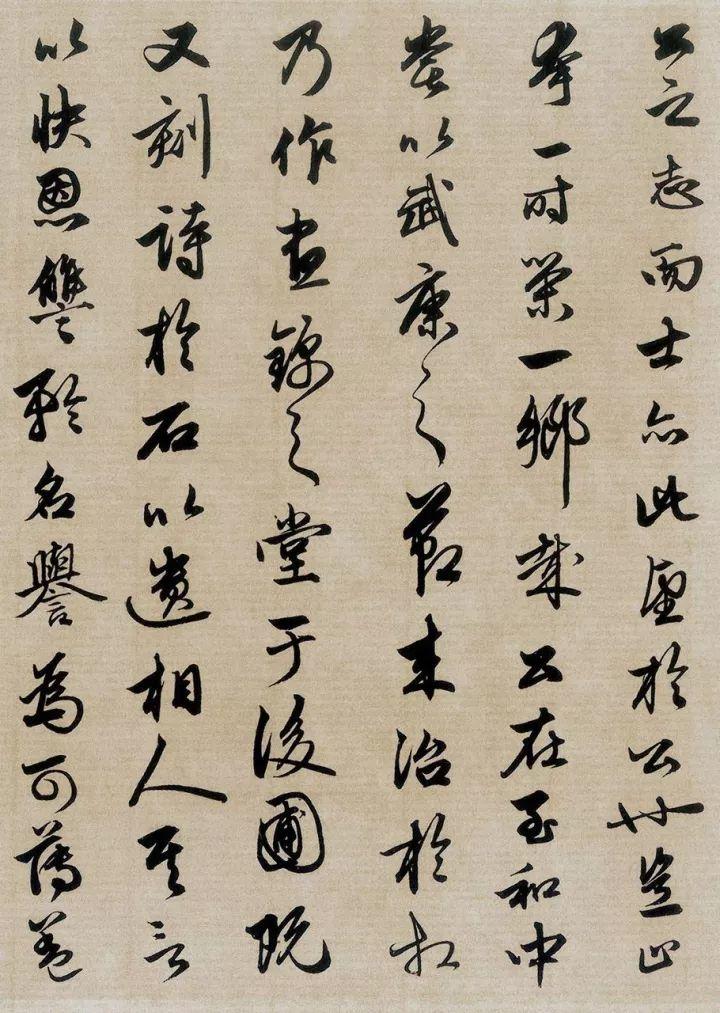 公之志而士亦此望於公也豈止
夸一時榮一鄉哉公在至和中
嘗以武康之節来治於相
乃作晝錦之堂于後圃既
又刻詩於石以遺相人其言
以快恩讐矜名譽為可薄蓋